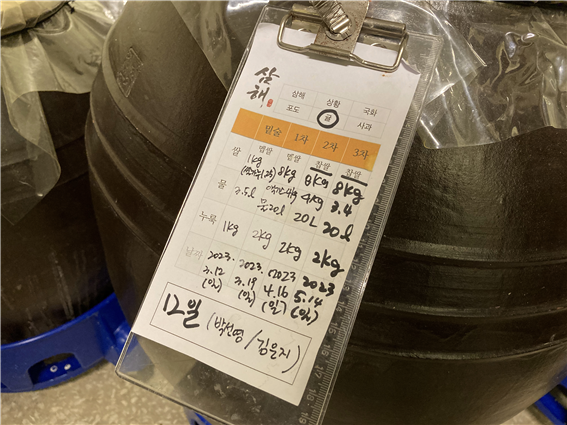 삼해
삼해 상황 국화
포도 귤 사과
밑술 1차 2차 3차
쌀 멥쌀 멥쌀 찹쌀 찹쌀
1kg 8kg 8kg 8kg
물 3.5l 물20l 4kg 3.4
20L 20l
누룩 1kg 2kg 2kg 2kg
날짜 2023. 2023. 2023 2023
3.12 3.19 4.16 5.14
(일) (일) (일) (일)
12일 (박선영/김은지)